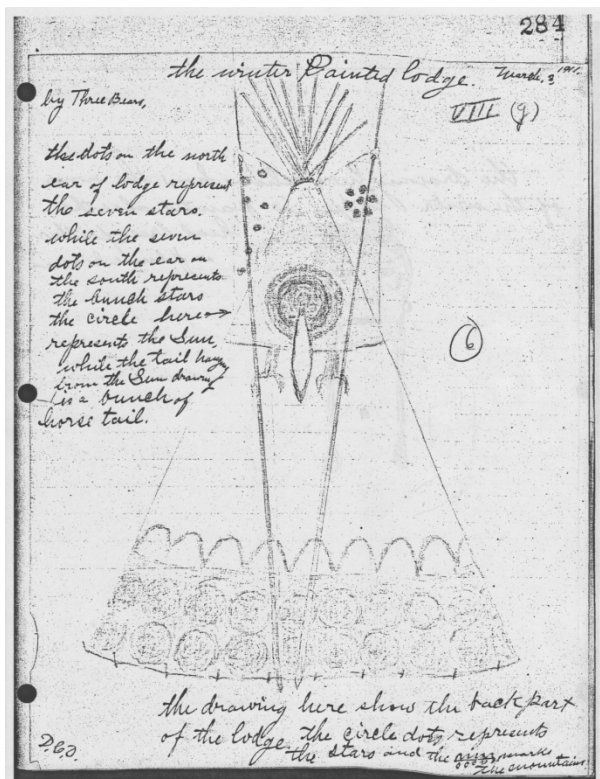 284
the winter Painted lodge. March. 3 1911.
by Three Bears.
VIII (g)
the dots on the north
ear of lodge represent
the seven stars.
while the seven
dots on the ear on
the south represents
the bunch stars
the circle here →
represents the Sun,
while the tail hang
from the Sun drawing
is a bunch of
horse tail.
6
the drawing here show the back part
of the lodge. the circle dots represents
the stars and the marks
the mountains